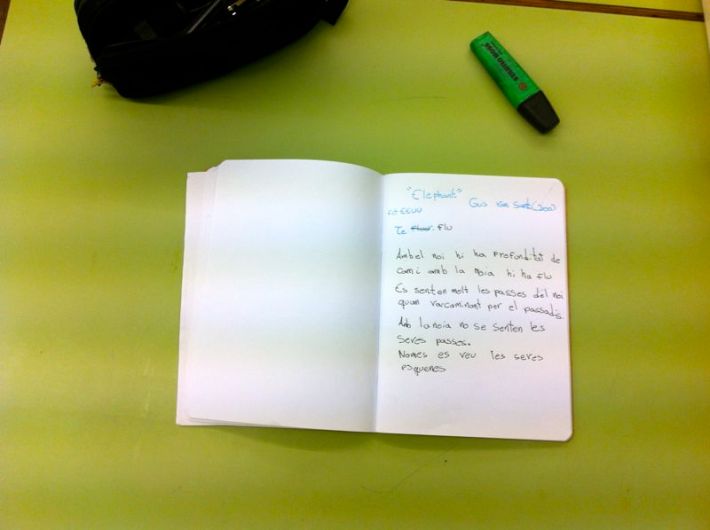 STABILO BOSS
"Elephant"
Gus Van Sant (200
Te flu
Ambel noi hi ha profunditat de
camí amb la noia hi ha flu
Es senten molt les passes del noi
quan va caminant per el passadís.
Amb la noia no se senten les
seves passes.
Nomes es veu les seves
esquenes